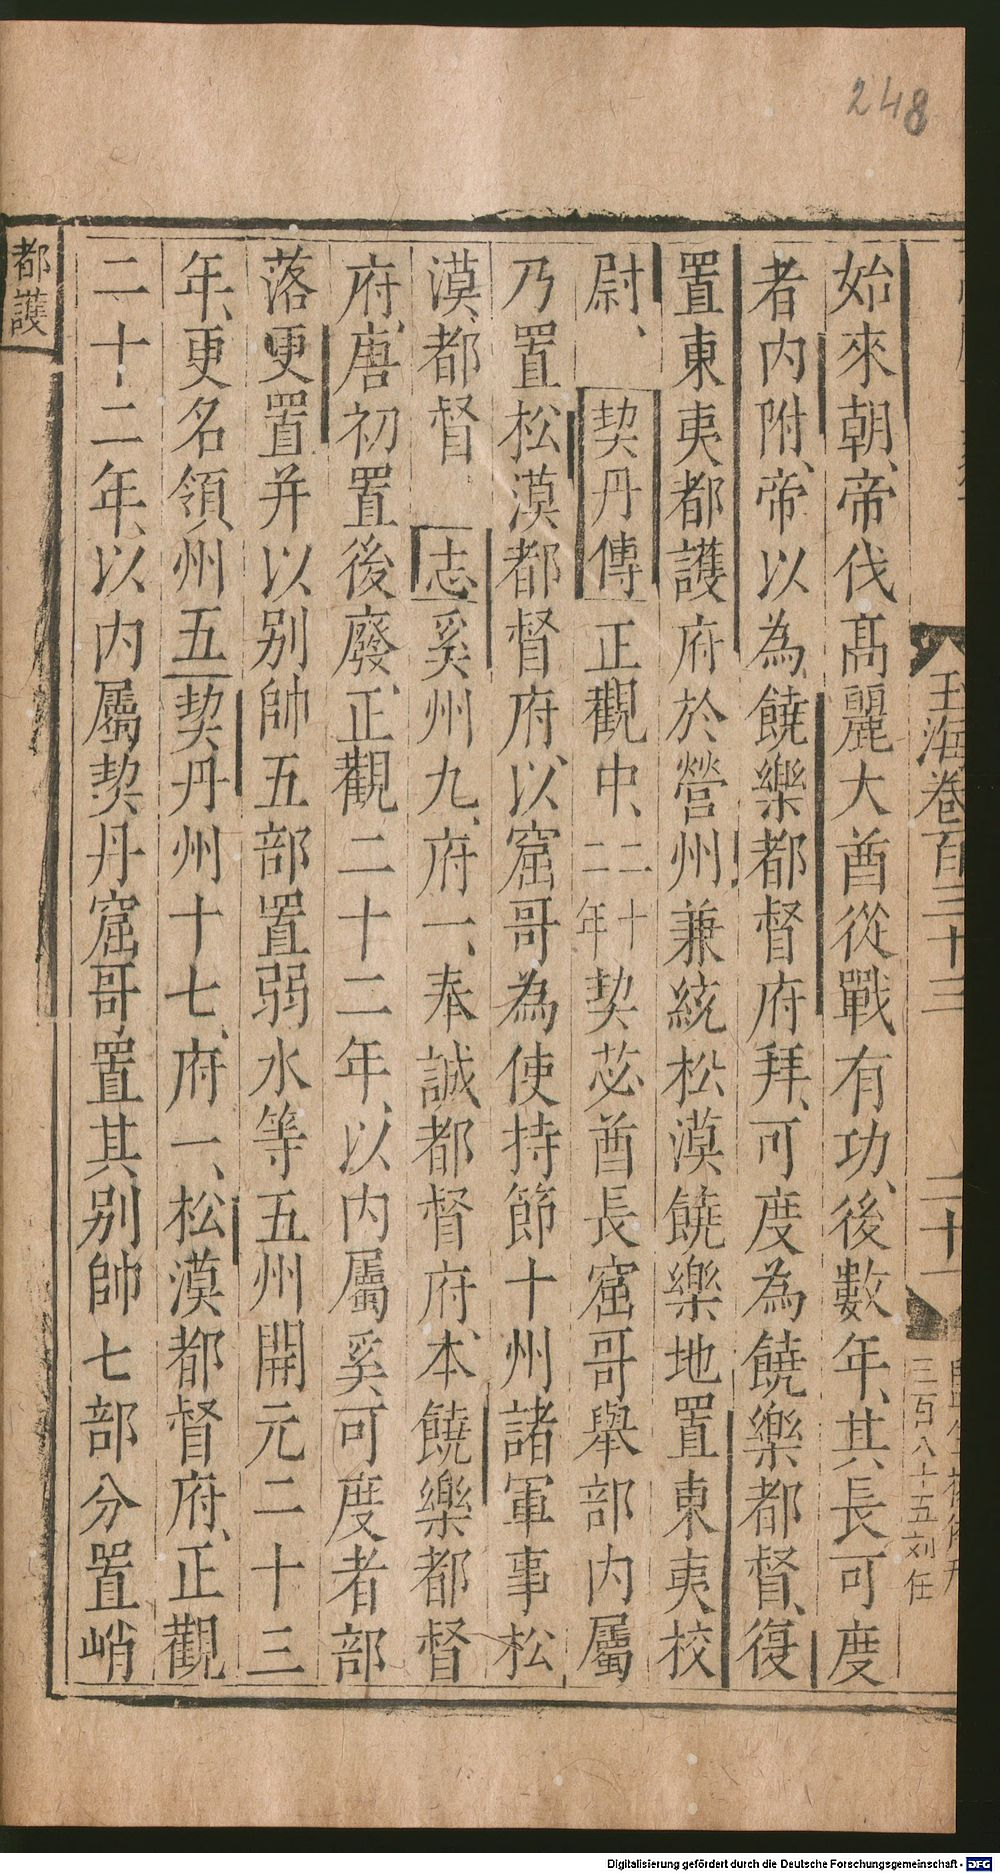 248
玉海卷百三十三
二十一
三百八十五刘任
始來朝帝伐髙麗大酋從戰有功後數年其長可度
者内附帝以為饒樂都督府拜可度為饒樂都督復
置東夷都護府於營州兼統松漠饒樂地置東夷校
尉契丹傳正觀中二十二年契苾酋長窟哥舉部内屬
乃置松漠都督府以窟哥為使持節十州諸軍事松
漠都督志奚州九府一奉誠都督府本饒樂都督
府唐初置後廢正觀二十二年以内屬奚可度者部
落更置并以别帥五部置弱水等五州開元二十三
年更名領州五契丹州十七府一松漠都督府正觀
二十二年以内屬契丹窟哥置其别帥七部分置峭
都護
Digitalisierung gefördert durch die Deutsche Forschungsgemeinschaft - DFG